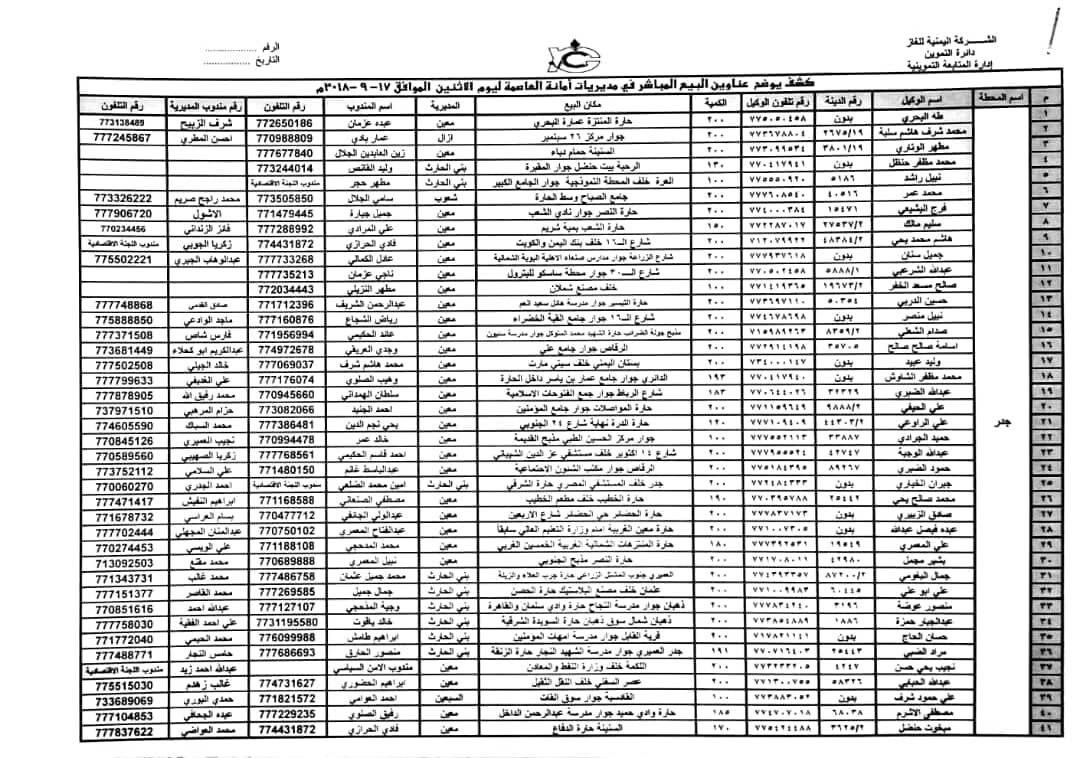 الشركة اليمنية للغاز
دائرة التموين
إدارة المتابعة التموينية
الرقم ..................
التاريخ ..................
كشف يوضح عناوين البيع المباشر في مديريات أمانة العاصمة ليوم الاثنين الموافق ١٧-٩-٢٠١٨م
م اسم المحطة اسم الوكيل رقم الدينة رقم تلفون الوكيل الكمية مكان البيع المديرية اسم المندوب رقم التلفون رقم مندوب المديرية رقم التلفون
جدر
١ طه البحري بدون ٧٧٥٠٥٠٤٥٨ ٢٠٠ حارة المنتزة عمارة البحري معين عبده عزمان 772650186 شرف الزبيح 773138489
٢ محمد شرف هاشم سلبة ٢٦٧٥/١٩ ٧٧٣٦٧٨٨٠٤ ٢٠٠ جوار مركز ٢٦ سبتمبر ازال عمار بادي 770988809 احسن المطري 777245867
٣ مطهر الوتاري ٣٨٠١/١٩ ٧٧٣٠٩٩٥٣٤ ٢٠٠ السنينة حمام دباء معين زين العابدين الجلال 777677840
٤ محمد مظفر حنظل بدون ٧٧٠٤١٧٩٤١ ١٣٠ الرحبة بيت حنضل جوار المقبرة بني الحارث وليد الغانص 773244014
٥ نبيل راشد ٥١٨٦ ٧٧٥٥٥٠٩٢٠ ١٠٠ العرة خلف المحطة النموذجية جوار الجامع الكبير بني الحارث مطهر حجر مندوب اللجنة الاقتصادية
٦ محمد عمر ٤٠٥١٦ ٧٧٧٦٠٨٥٤٠ ٢٠٠ جامع الصباح وسط الحارة شعوب سامي الجلال 773505850 محمد راجح صريم 773326222
٧ فرج البشيعي ١٥٤٧١ ٧٧٤٠٠٠٣٨٤ ٢٠٠ حارة النصر جوار نادي الشعب معين جميل جبارة 771479445 الاشول 777906720
٨ سليم مالك ٢٧٥٣٧/٢ ٧٧٢٢٨٧٠١٧ ١٥٠ حارة الشعب بمية شريم معين علي المرادي 777288992 فائز الزنداني 770234456
٩ هاشم محمد يحي ٤٨٣٨٤/٢ ٧١٢٠٧٩٩٢٢ ٢٠٠ شارع الـ١٦ خلف بنك اليمن والكويت معين فادي الحرازي 774431872 زكريا الجوبي مندوب اللجنة الاقتصادية
١٠ جميل سنان بدون ٧٧٧٩٣٧٦١٨ ٢٠٠ شارع الزراعة جوار مدارس صنعاء الاهلية البوية الشمالية معين عادل الكمالي 777733268 عبدالوهاب الجبري 775502221
١١ عبدالله الشرعبي ٥٨٨٨/١ ٧٧٠٥٠٢٤٥٨ ٢٠٠ شارع الـ٣٠ جوار محطة ساسكو للبترول معين ناجي عزمان 777735213
١٢ صالح مسعد الخفر ١٩٦٧٣/٢ ٧٧١٤١٩٣٦٥ ١٠٠ خلف مصنع شملان معين مطهر النزيلي 772034443
١٣ حسين الدربي ٥٠٣٥٤ ٧٧٣٦٩٧١١٠ ٢٠٠ حارة التيسير جوار مدرسة هائل سعيد انعم معين عبدالرحمن الشريف 771712396 صادق القدمي 777748868
١٤ نبيل منصر بدون ٧٧٤٦٧٨٦٩٨ ٢٠٠ شارع الـ١٦ جوار جامع القبة الخضراء معين رياض الشجاع 777160876 ماجد الوادعي 775888850
١٥ صدام الشعلي ٨٣٥٩/٢ ٧١٥٩٨٢٢٦٣ ٢٠٠ مذبح جولة الضراب حارة الشهيد محمد المتوكل جوار مدرسة سنيون معين عائد الحكيمي 771956994 فارس شاص 777371508
١٦ اسامة صالح صالح ٣٥٧٠٥ ٧٧٢٩١٤١٩٨ ٢٠٠ الرقاص جوار جامع علي معين وجدي العريفي 774972678 عبدالكريم ابو كحلاء 773681449
١٧ وليد عبيد بدون ٧٣٤٠٠٠١٤٧ ٢٠٠ بستان اليمني خلف سيتي مارت معين محمد هاشم شرف 777069037 خالد الجيلي 777502508
١٨ محمد مظفر الشاوش بدون ٧٧٠٤١٧٩٤٠ ١٩٣ الدائري جوار جامع عمار بن ياسر داخل الحارة معين وهيب الصلوي 777176074 علي الغديفي 777799633
١٩ عبدالله الضبري ٣٢٣٢٩ ٧٧٠٦٤٤٠٢٦ ١٨٣ شارع الرباط جوار جمع الفتوحات الاسلامية معين سلطان الهمداني 770945660 محمد رفيق الله 777878905
٢٠ علي الحيفي ٩٨٨٨/٢ ٧٧١١٥٩٦٤٩ ٢٠٠ حارة المواصلات جوار جامع المؤمنين معين احمد الجنيد 773082066 حزام المرهبي 737971510
٢١ علي الراوعي ٤٤٣٠٣/٢ ٧٧٧١٠٩٤٠٩ ١٢٠ حارة الدرة نهاية شارع ٢٤ الجنوبي معين يحي نجم الدين 777386481 محمد السباك 774605590
٢٢ حميد الجرادي ٣٣٨٨٧ ٧٧٧٥٥٢١١٣ ١٠٠ جوار مركز الحسين الطبي مذبح القديمة معين خالد عمر 770994478 نجيب العميري 770845126
٢٣ عبدالله الوجبة ٤٢٧٤٧ ٧٧٠٥٥٤٤٧٧ ٢٠٠ شارع ١٤ اكتوبر خلف مستشفي عز الدين الشيباني معين احمد قاسم الحكيمي 777768561 زكريا الصهيبي 770589560
٢٤ حمود الضبري ٨٩٢٦٧ ٧٧٥١٨٤٣٩٥ ٢٠٠ الرقاص جوار مكتب الشئون الاجتماعية معين عبدالباسط غانم 771480150 علي السلامي 773752112
٢٥ جبران الخياري بدون ٧٧٢٤٨٤٣٣٣ ٢٠٠ جدر خلف المستشفي المصري حارة الشرقي بني الحارث امين محمد الضلعي مندوب اللجنة الاقتصادية احمد الجدري 770060270
٢٦ محمد صالح يحي ٢٥٤٤٢ ٧٧٠٣٩٥٧٨٨ ١٩٠ حارة الخطيب خلف مطعم الخطيب معين مصطفي الصنعاني 771168588 ابراهيم النفيش 777471417
٢٧ صادق الزبيري بدون ٧٧٧٨٣٧١٧٣ ٢٠٠ حارة الحضائر حي الحضائر شارع الاربعين معين عبدالولي الجانفي 770477712 بسام العراسي 771678732
٢٨ عبده فيصل عبدالله بدون ٧٧١٠٠٧٣٠٥ ٢٠٠ حارة معين الغربية امام وزارة التعليم العالي سابقا معين عبدالفتاح المصري 770750102 عبدالمنان المجهلي 777702444
٢٩ علي المصري ١٩٥٤٩ ٧٧٧٣٩٢٥٣١ ١٨٠ حارة المتنزهات الشمالية الغربية الخمسين الغربي معين محمد المدحجي 771188108 علي الويسي 770274453
٣٠ بشير مجمل ٤٢٩٨٠ ٧٧١٧٠٨٠١١ ٢٠٠ حارة النصر مذبح الجنوبي معين نبيل المعمري 770689888 محمد مقنع 713092503
٣١ جمال البغومي ٨٧٢٠٠/٢ ٧٧٤٣٩٣٣٥٧ ٢٠٠ العميري جنوب المشتل الزراعي حارة جرب العلاء والزيلة بني الحارث محمد جميل عثمان 777486758 محمد غالب 771343731
٣٢ علي ابو علي ٦٠٤٤٥ ٧٧١٠٠٩٩٨٣ ٢٠٠ عثمان خلف مصنع البلاستيك حارة الحصن بني الحارث جمال جميل 777269585 محمد القاصر 777151377
٣٣ منصور عوضة ٣١٩٦ ٧٧٧٨٣٤٢٤٠ ٢٠٠ ذهبان جوار مدرسة النجاح حارة وادي سلمان والقاهرة بني الحارث وجية المذحجي 777127107 عبدالله احمد 770851616
٣٤ عبدالجبار حمزة ١٨٨٦ ٧٧٣٨٥٤٨٨٩ ٢٠٠ ذهبان شمال سوق ذهبان حارة السويدة الشرقية بني الحارث خالد ياقوت 7731195580 علي احمد الفقية 777758030
٣٥ حسان الحاج بدون ٧١٧٨٢١١٤١ ٢٠٠ قرية القابل جوار مدرسة امهات المؤمنين بني الحارث ابراهيم طامش 776099988 محمد الحيمي 771772040
٣٦ مراد الضبي ٢٥٤٤٣ ٧٧٠٧١٦٤٠٣ ١٩١ جدر العميري جوار مدرسة الشهيد النجار حارة الزنقة بني الحارث منصور الحارق 777686693 حامس النجار 777488771
٣٧ نجيب يحي حسن ٤٢٤٧ ٧٧٣٢٣٣٢٠٥ ٢٠٠ التكمة خلف وزارة النفط والمعادن معين مندوب الامن السياسي عبدالله احمد زيد مندوب اللجنة الاقتصادية
٣٨ عبدالله الحبابي ٥٨٣٢٦ ٧٧١٣٠٠٧٥٥ ٢٠٠ عصر السفلي خلف النقل الثقيل معين ابراهيم الحضوري 774731627 غالب زهدم 775515030
٣٩ علي حمود شرف بدون ٧٧٣٨٨٣٠٥٢ ١٠٠ القادسية جوار سوق القات السبعين احمد العوامي 771821572 حمدي البوري 733689069
٤٠ مصطفي الاشرم ٦٨٠٣٨ ٧٧٤٧٠٧٠١٨ ١٨٥ حارة وادي حميد جوار مدرسة عبدالرحمن الداخل معين رفيق الصلوي 777229235 عبده الجحافي 777104853
٤١ مبخوت حنضل ٣٦٢٥/٢ ٧٧٥٤٢٤٤٨٨ ١٧٠ السنينة حارة الدفاع معين فادي الحرازي 774431872 محمد العواضي 777837622